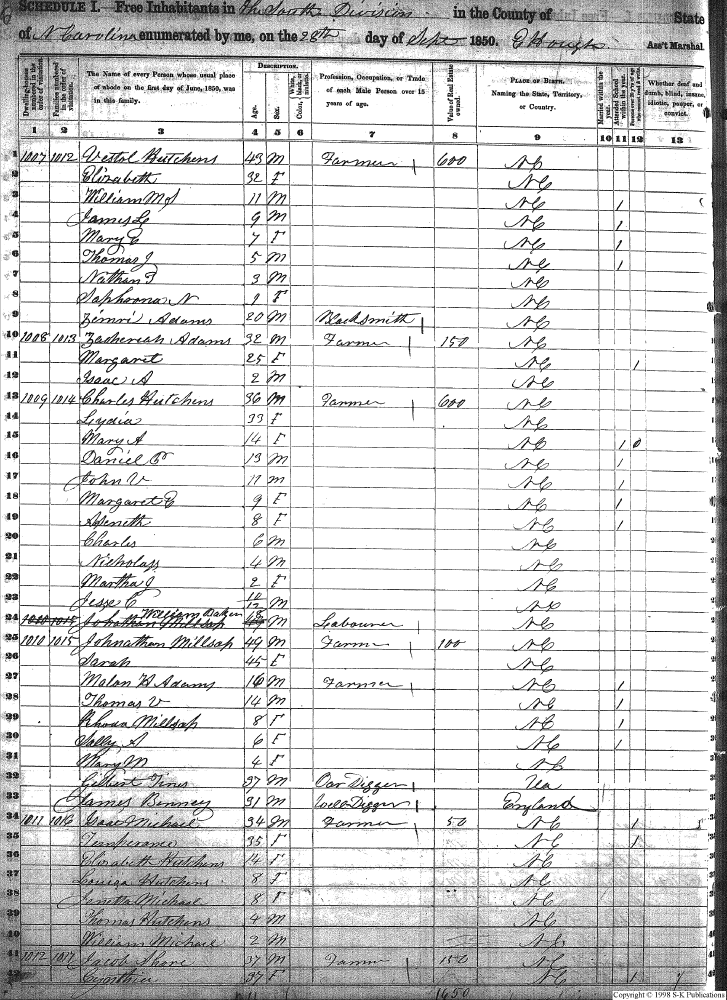 SCHEDULE I.—Free Inhabitants in the South Division in the County of State
of N Carolina enumerated by me, on the 28th day of Sept 1850. E Hough Ass't Marshal
Dwelling-houses numbered in the order of visitation. Families numbered in the order of visitation. The Name of every Person whose usual place of abode on the first day of June, 1850, was in this family. Description. Age. Sex. Color, {White, black, or mulatto. Profession, Occupation, or Trade of each Male Person over 15 years of age. Value of Real Estate owned. Place of Birth. Naming the State, Territory, or Country. Married within the year. Attended School within the year. Persons over 20 y'rs of age who cannot read & write. Whether deaf and dumb, blind, insane, idiotic, pauper, or convict.
1 2 3 4 5 6 7 8 9 10 11 12 13
1 1007 1012 Vestol Hutchens 43 M Farmer 1 600 NC
2 Elizabeth 32 F NC
3 William M 11 M NC 1
4 James L 9 M NC 1
5 Mary E 7 F NC 1
6 Thomas J 5 M NC 1
7 Nathan F 3 M NC
8 Saphoona N 1 F NC
9 Zimri Adams 20 M Blacksmith 1 NC
10 1008 1013 Zachereah Adams 32 M Farmer 1 150 NC
11 Margaret 25 F NC 1
12 Isaac A 2 M NC
13 1009 1014 Charles Hutchens 36 M Farmer 1 600 NC
14 Lydia 33 F NC
15 Mary A 14 F NC 1 0
16 Daniel 13 M NC 1
17 John V 11 M NC 1
18 Margaret E 9 F NC 1
19 Aseneth 8 F NC 1
20 Charles 6 M NC
21 Nicholass 4 M NC
22 Martha J 2 F NC
23 Jesse C 10/12 M NC
24 1010 1015 Johathan Millsap William Baker 18 M Labourer 1 NC
25 1010 1015 Johnathan Millsap 49 M Farmer 100 NC
26 Sarah 45 F NC
27 Malon H Adams 16 M Farmer 1 NC 1
28 Thomas V 14 M NC 1
29 Rhoda Millsap 8 F NC 1
30 Sally A 6 F NC 1
31 Mary M 4 F NC
32 Gilbert 37 M Oar Digger 1 Va
33 James Benney 31 M Well Digger 1 England
34 1011 1016 Isaac Michael 34 M Farmer 1 50 NC 1
35 Temperance 35 F NC 1
36 Elizabeth Hutchens 14 F NC
37 Louiza Hutchens 8 F NC
38 Janetta Michael 8 F NC
39 Thomas Hutchens 4 M NC
40 William Michael 2 M NC
41 1012 1017 Jacob Shore 37 M Farmer 150 NC
42 Cinthia 37 F NC 1
1650
Copyright © 1998 S-K Publications